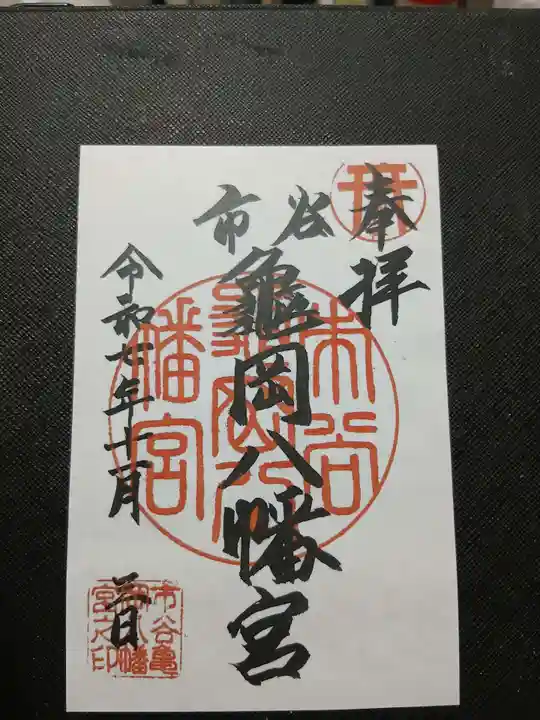 奉拝
市谷
龜岡八幡宮
令和七年十月
二日
市谷
八幡宮
市谷亀
岡八幡
宮之印